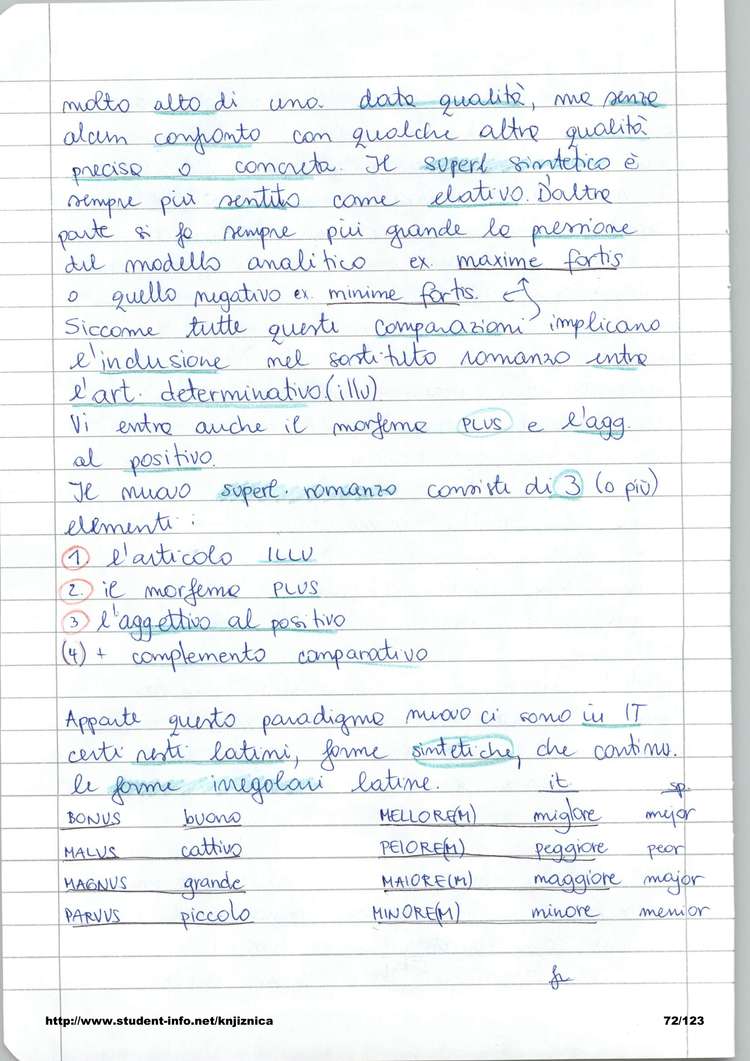 molto alto di una data qualità, ma senza
alcun confronto con qualche altra qualità
precisa o concreta. Il superl sintetico è
sempre più sentito come elativo. D'altra
parte si fa sempre più grande la pressione
del modello analitico ex. maxime fortis
o quello negativo ex. minime fortis.
Siccome tutte questi comparazioni implicano
l'inclusione nel sostituto romanzo entra
l'art. determinativo (illu)
Vi entra anche il morfema PLUS e l'agg.
al positivo.
Il nuovo superl. romanzo consiste di 3 (o più)
elementi:
1 l'articolo ILLU
2. il morfema PLUS
3 l'aggettivo al positivo
(4) + complemento comparativo
Apparte questo paradigma nuovo ci sono in IT
certi resti latini, forme sintetiche, che continu.
le forme irregolari latine. it sp.
BONUS buono MELLORE(M) miglore mejor
MALUS cattivo PEIORE(M) peggiore peor
MAGNUS grande MAIORE(M) maggiore major
PARVUS piccolo MINORE(M) minore menior
fr
http://www.student-info.net/knjiznica 72/123